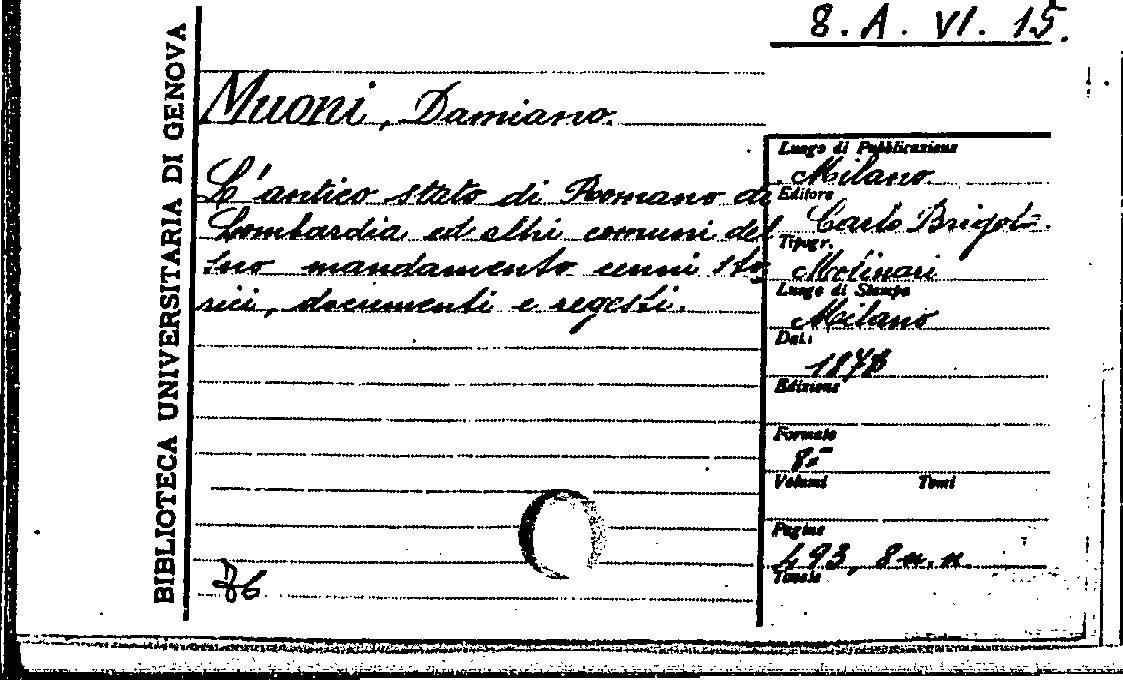 8. A. VI. 15.
BIBLIOTECA UNIVERSITARIA DI GENOVA
Muoni, Damiano.
L'antico stato di Romano di
Lombardia ed altri comuni del
suo mandamento cenni sto
rici, documenti e regesti.
Luogo di Pubblicazione
Milano.
Editore
Carlo Brigola.
Tipogr.
Molinari
Luogo di Stampa
Milano
Data
Edizione
Formato
8°
Volumi Tomi
Pagine
493, 8 n. n.